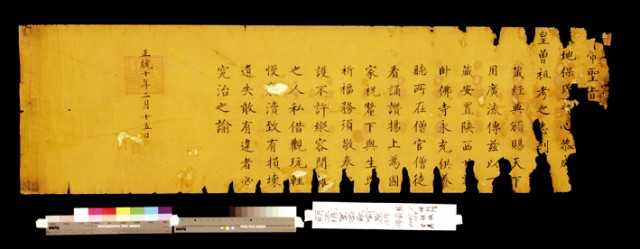 帝聖旨
地保民心恭成
皇曾祖考之刊
藏經典頒賜天下
用廣流傳茲以
藏安置陝西
卧佛寺永充供養
聽所在僧官僧徒
看誦讚揚上為國
家祝釐下與生民
祈福務須敬奉
護不許縱容閒雜
之人私借觀玩輕
慢瀆致有損壞
遺失敢有違者必
究治之諭
正統十年二月十五日